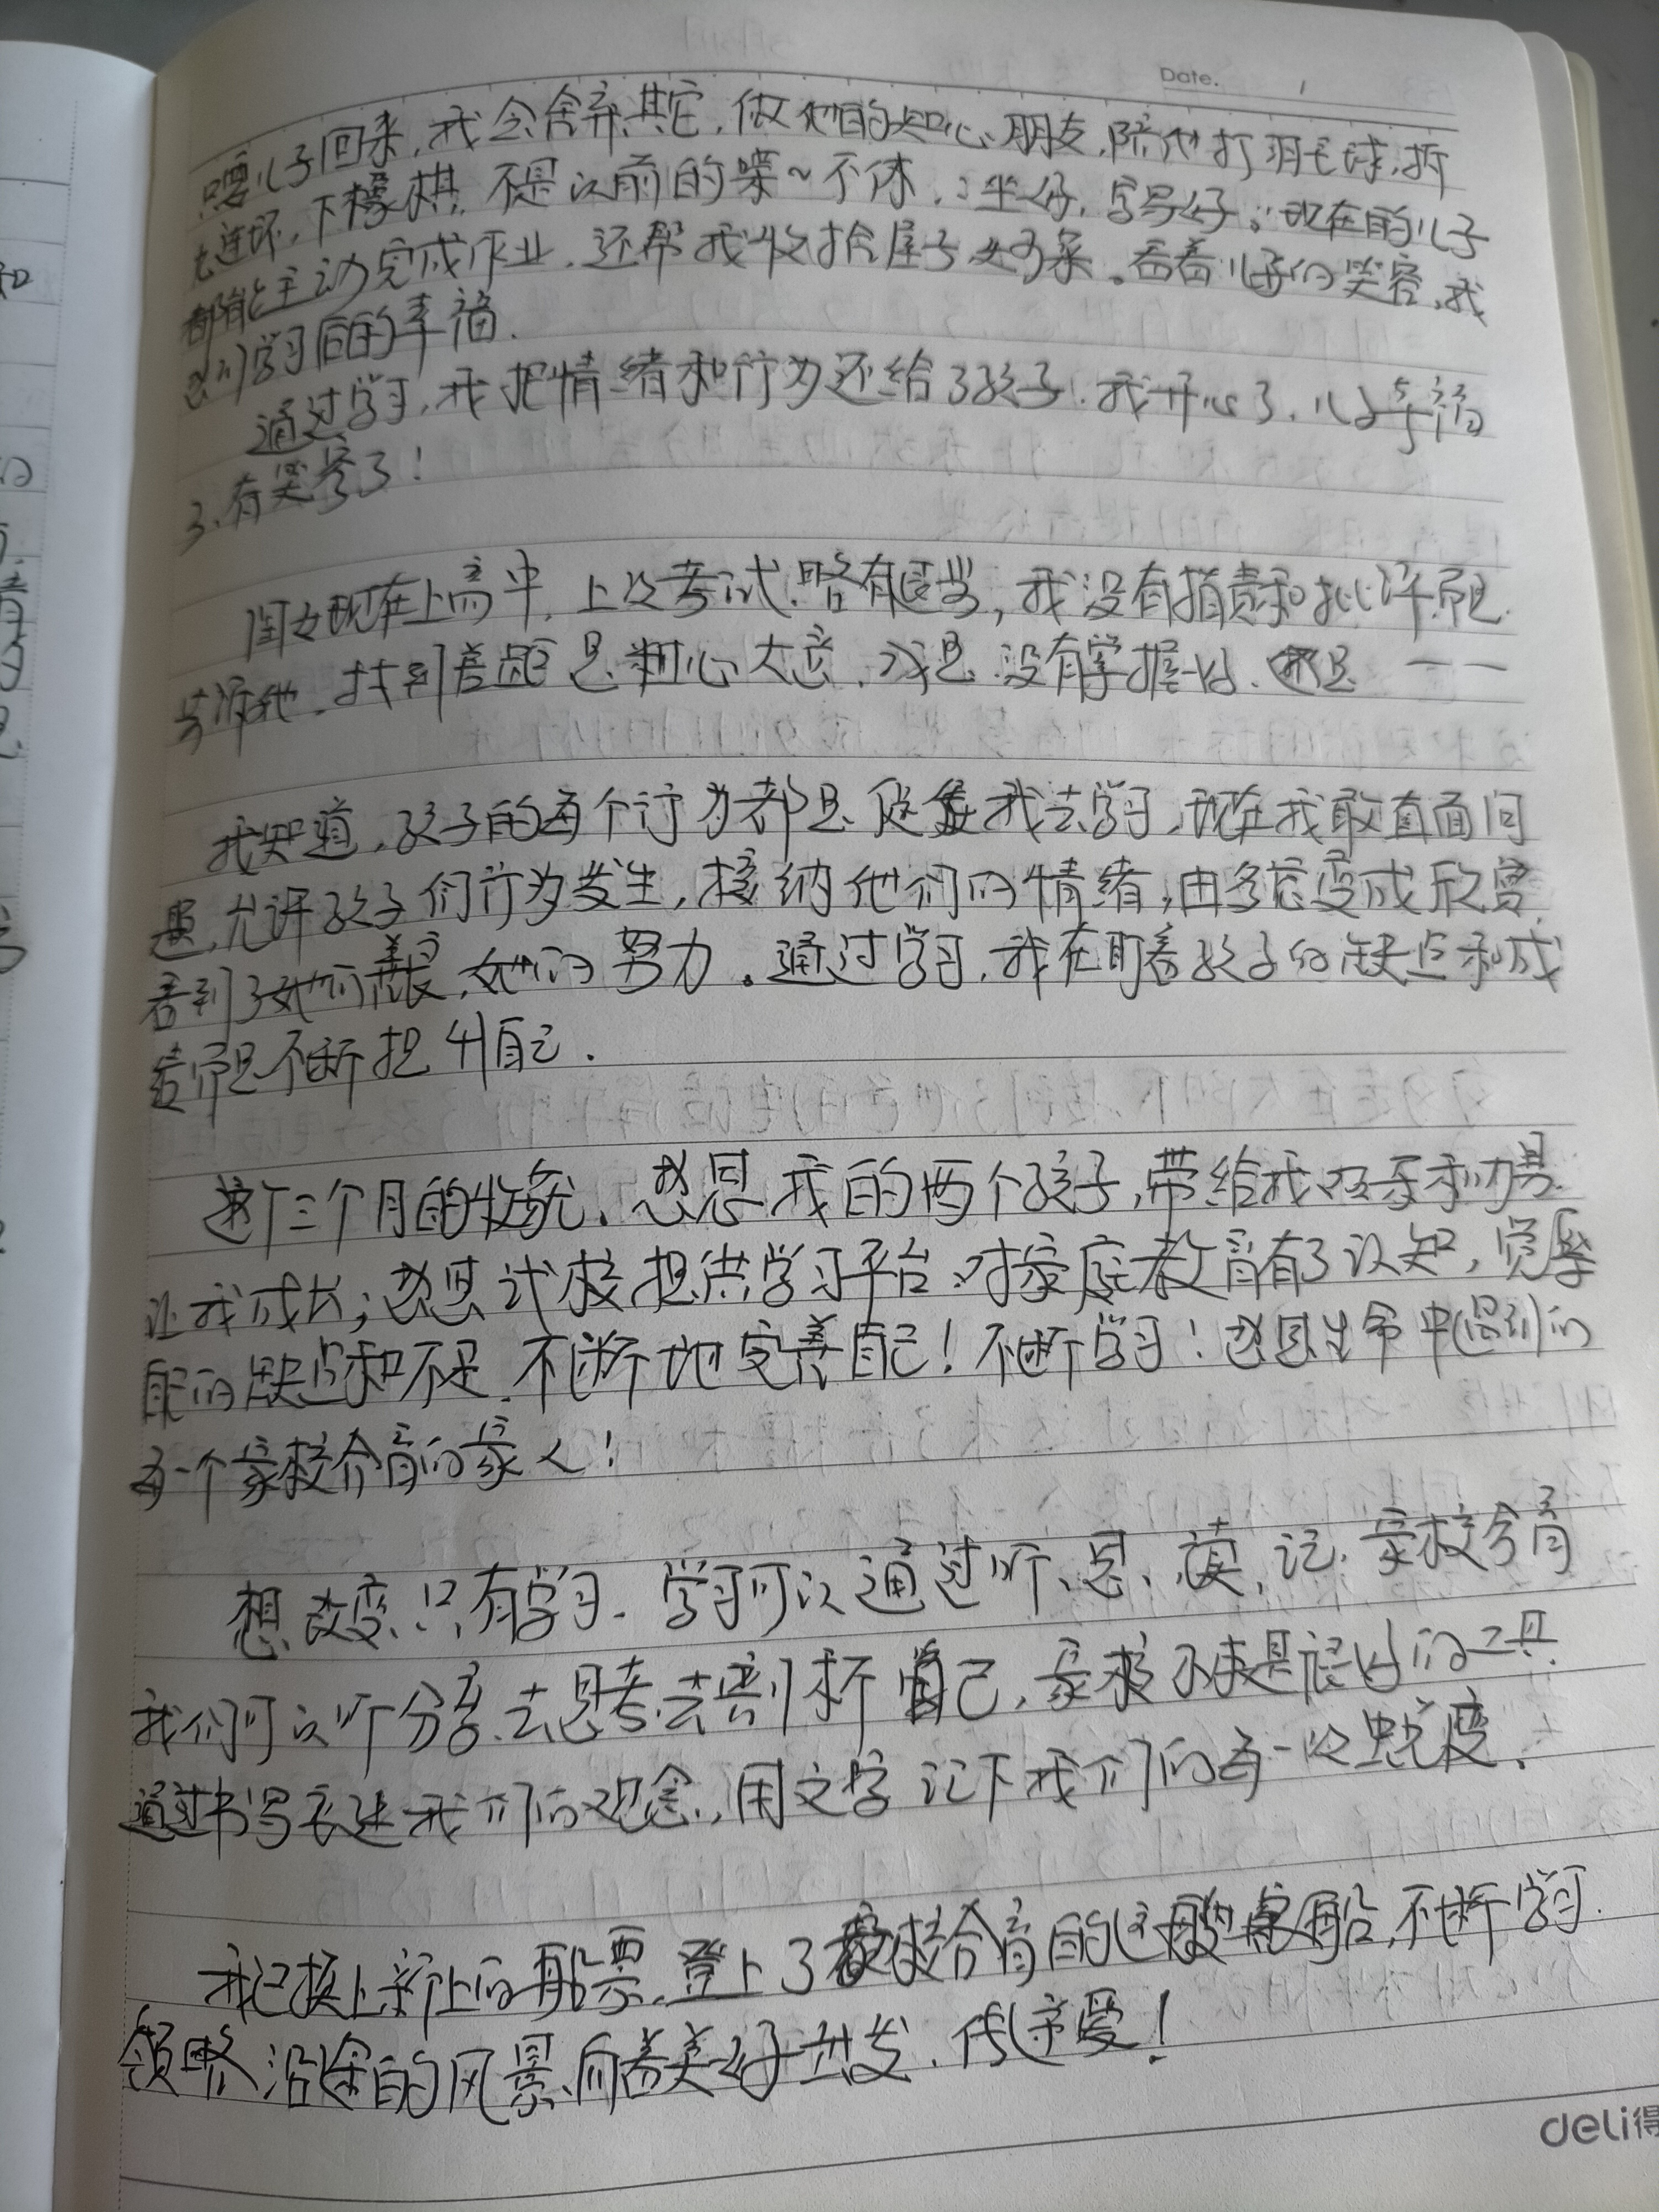 Date.
只要儿子回来,我会舍弃其它,做他的知心朋友,陪他打羽毛球,拆
九连环,下橡棋,不是以前的喋~不休,:坐好,字写好;现在的儿子
都能主动完成作业,还帮我收拾屋子,炒菜。看着儿子的笑容,我
学习后的幸福.
通过学习,我把情绪和行为还给了孩子.我开心了,儿子幸福
了,有笑容了!
闺女现在上高中,上次考试,略有退步,我没有指责和批评,而是
告诉他,找到差距是粗心大意,或是没有掌握好,还是——
我知道,孩子的每个行为都是促使我去学习,现在我敢直面问
题,允许孩子们行为发生,接纳他们的情绪,由焦虑变成欣赏,
看到了她们善良,她们的努力。通过学习,我不在盯着孩子的缺点和成
绩而是不断提升自己.
这个三个月的收获,感恩我的两个孩子,带给我欢乐和力量,
让我成长;感恩学校提供学习平台,对家庭教育有了认知,觉察
自己的缺点和不足,不断地完善自己!不断学习!感恩生命中遇到的
每一个家校合育的家人!
想改变,只有学习,学习可以通过听、思、读、记,家校合育
我们可以听分享,去思考,去剖析自己,家校本是很好的工具
通过书写表达我们的观念,用文字记下我们的每一次蜕变.
我已换上新的船票,登上了家校合育的这艘船,不断学习.
领略沿途的风景,向着美好出发,传递爱!
deli得